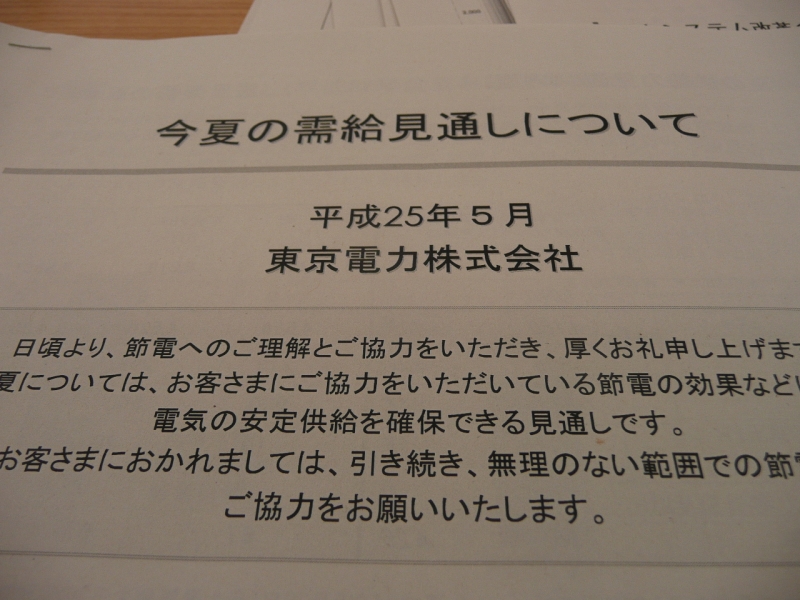 システム改革
今夏の需給見通しについて
平成25年５月
東京電力株式会社
日頃より、節電へのご理解とご協力をいただき、厚くお礼申し上げま
夏については、お客さまにご協力をいただいている節電の効果などに
電気の安定供給を確保できる見通しです。
お客さまにおかれましては、引き続き、無理のない範囲での節電
ご協力をお願いいたします。